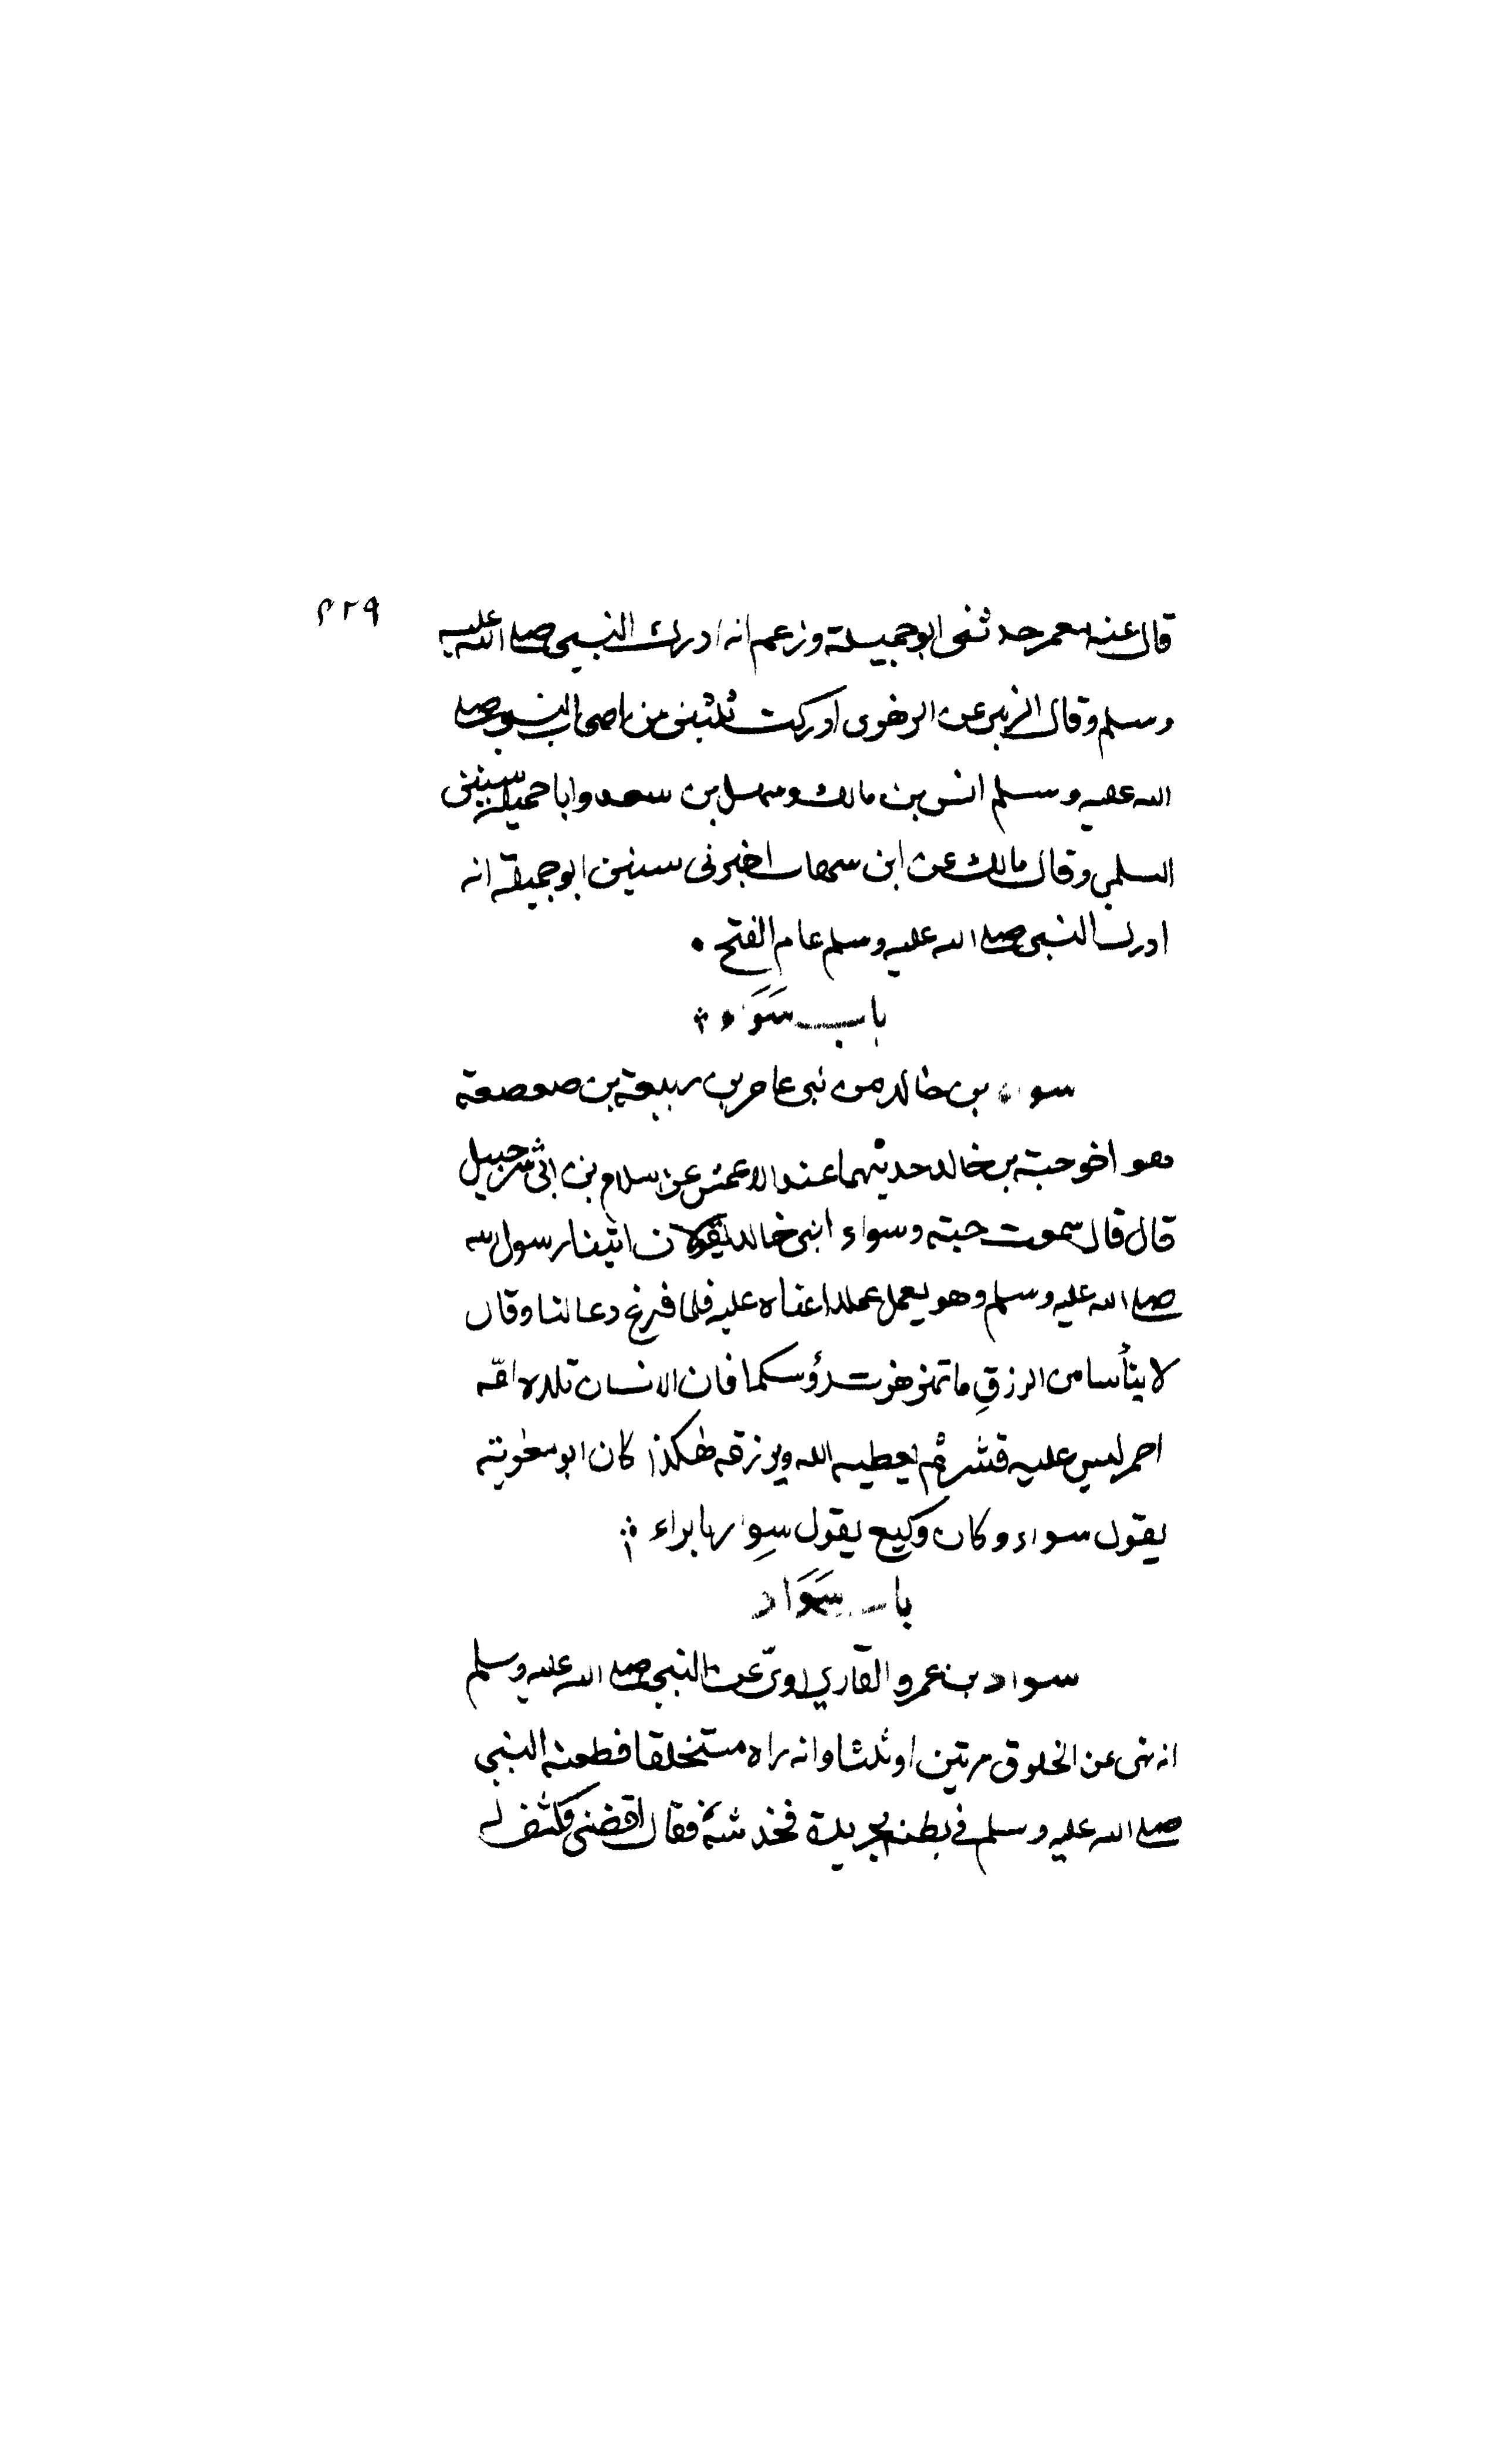 ٤٢٩
قال عنه معمر حدثنى ابو جميلة وزعم انه ادرك النبي صلى الله عليه
وسلم وقال الزبير عن الزهوى ادركت ثلثة من اصحاب النبي صلى
الله عليه وسلم انس بن مالك وسهل بن سعد وابا جميلة سنين
السلمي وقال مالك عن ابن سهاب اخبرنى سنين ابو جميلة انه
ادرك النبى صلى الله عليه وسلم عام الفتح .
باب سَوَاء
سواء بن خالد من بنى عامر بن ربيعة بن صعصعة
وهو اخو حبة بن خالد حديثهما عند الاعمش عن سلام بن ابى شرحبيل
قال قال سمعت حبة وسواء ابنى خالد يقولان اتينا رسول الله
صلى الله عليه وسلم وهو يعمل عملا اعناه عليه فلما فرغ دعا لنا وقال
لا ييأسا من الرزقِ ما تهزهزت رؤسكما فان الانسان تلده امّه
احمر ليس عليه قشر ثم يعطيه الله ويرزقه هكذا كان ابو معٰوية
يقول سواء وكان وكيع يقول سِوار بابراء
باب سَوَاد
سواد بن عمرو القاري روى عن النبي صلى الله عليه وسلم
انه نهى عن الخلوق مرتين او ثلثا وانه راه متخلقا فطعنه النبي
صلى الله عليه وسلم فى بطنه بجريدة فخدشه فقال اقضنى فكشف له